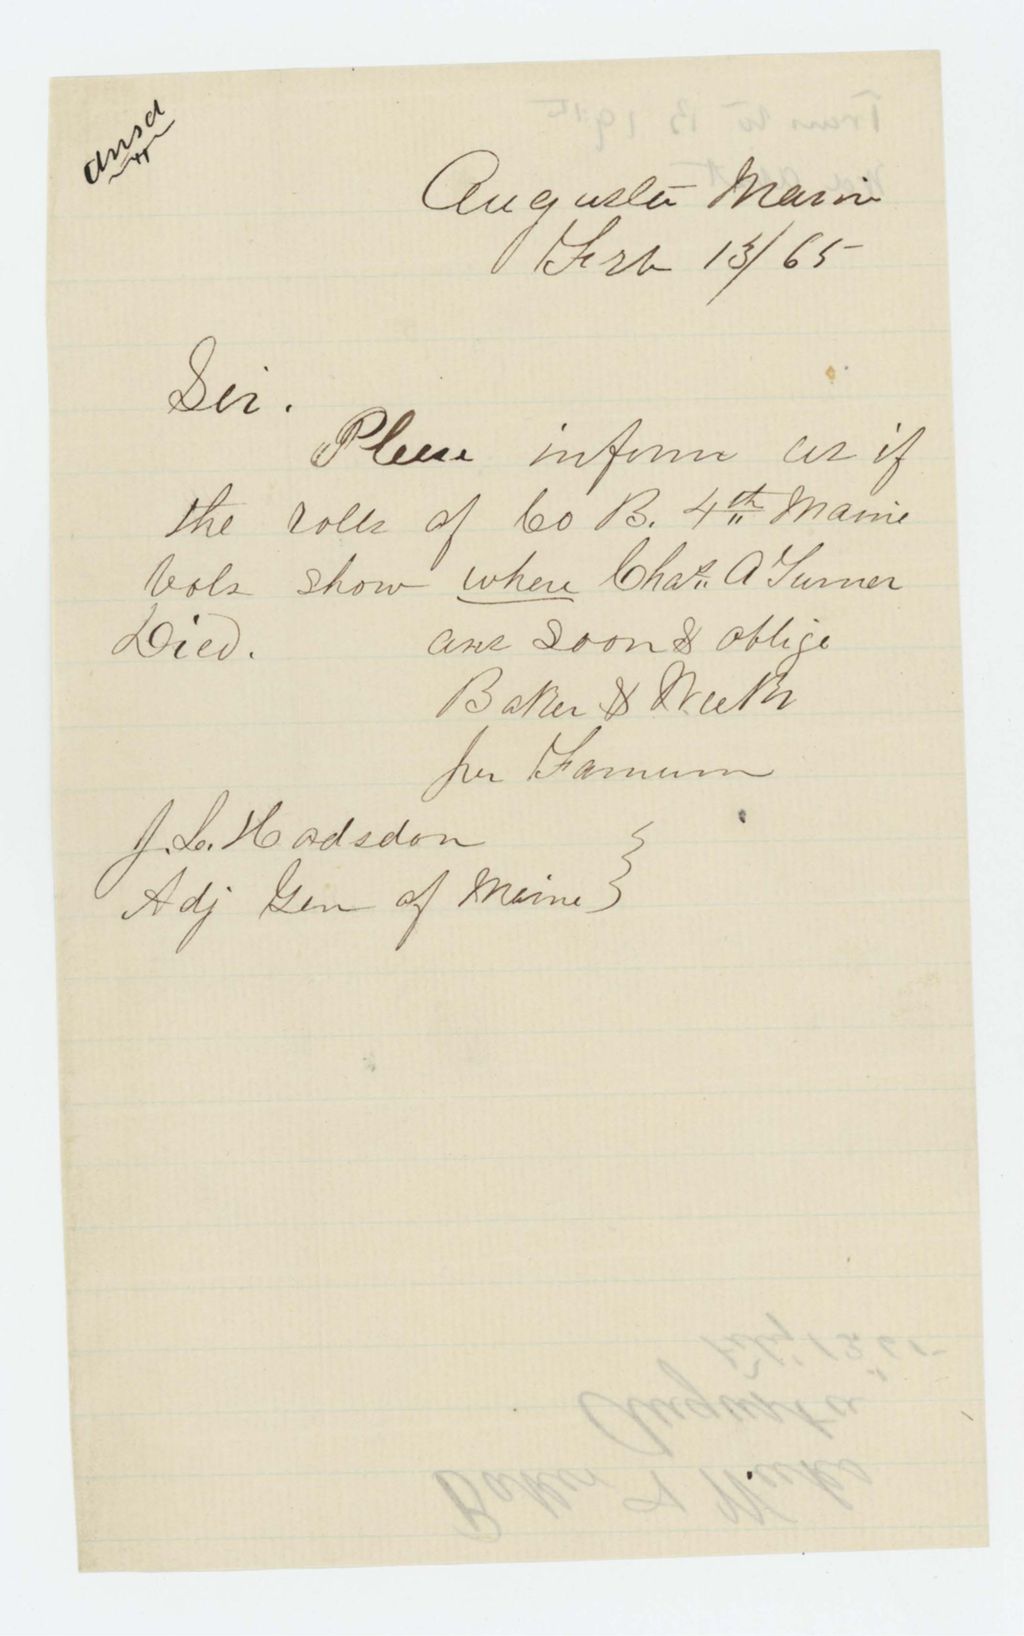 ansd
Augusta Maine
Feb 13/65
Sir.
Please inform us if
the rolls of Co B. 4th Maine
Vols show where Chas. A Turner
Died. ans soon & oblige
Baker & Weeks
per Farnum
J. L. Hodsdon
Adj Gen of Maine
Augusta
Baker & Weeks